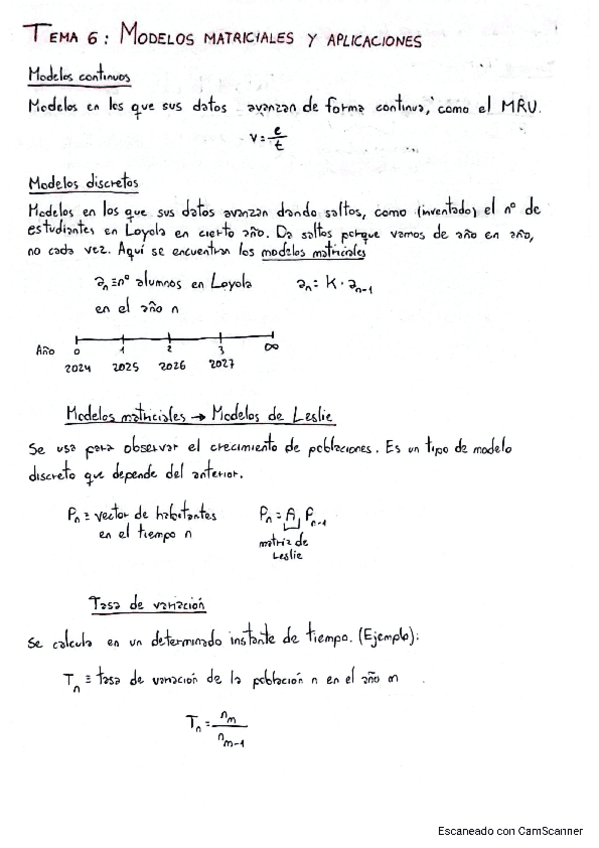 TEMA 6: MODELOS MATRICIALES Y APLICACIONES
Modelos continuos
Modelos en los que sus datos avanzan de forma continua, como el MRU.
v = e/t
Modelos discretos
Modelos en los que sus datos avanzan dando saltos, como (inventado) el nº de
estudiantes en Loyola en cierto año. Da saltos porque vamos de año en año,
no cada vez. Aquí se encuentran los modelos matriciales
a_n ≡ nº alumnos en Loyola a_n = K · a_{n-1}
en el año n
Año 0 1 2 3 ∞
2024 2025 2026 2027
Modelos matriciales → Modelos de Leslie
Se usa para observar el crecimiento de poblaciones. Es un tipo de modelo
discreto que depende del anterior.
P_n ≡ vector de habitantes P_n = A · P_{n-1}
en el tiempo n matriz de
Leslie
Tasa de variación
Se calcula en un determinado instante de tiempo. (Ejemplo):
T_n ≡ tasa de variación de la población n en el año m
T_n = n_m / n_{m-1}
Escaneado con CamScanner